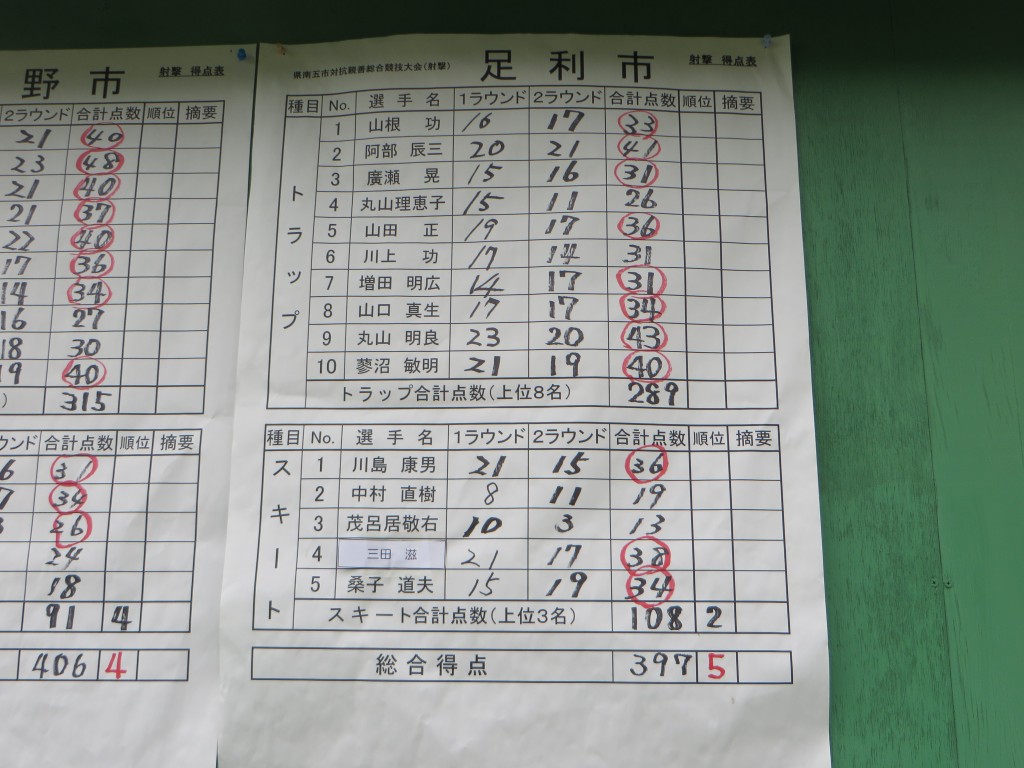 野市 射撃 得点表
2ラウンド 合計点数 順位 摘要
21 40
23 48
21 40
21 37
22 40
17 36
14 34
16 27
18 30
19 40
) 315
ウンド 合計点数 順位 摘要
6 31
7 34
26
24
18
91 4
406 4
県南五市対抗親善総合競技大会(射撃) 足利市 射撃 得点表
種目 No. 選手名 1ラウンド 2ラウンド 合計点数 順位 摘要
トラップ
1 山根 功 16 17 33
2 阿部 辰三 20 21 41
3 廣瀬 晃 15 16 31
4 丸山理恵子 15 11 26
5 山田 正 19 17 36
6 川上 功 17 14 31
7 増田 明広 14 17 31
8 山口 真生 17 17 34
9 丸山 明良 23 20 43
10 蓼沼 敏明 21 19 40
トラップ合計点数(上位8名) 289
種目 No. 選手名 1ラウンド 2ラウンド 合計点数 順位 摘要
スキート
1 川島 康男 21 15 36
2 中村 直樹 8 11 19
3 茂呂居敬右 10 3 13
4 三田 滋 21 17 38
5 桑子 道夫 15 19 34
スキート合計点数(上位3名) 108 2
総合得点 397 5